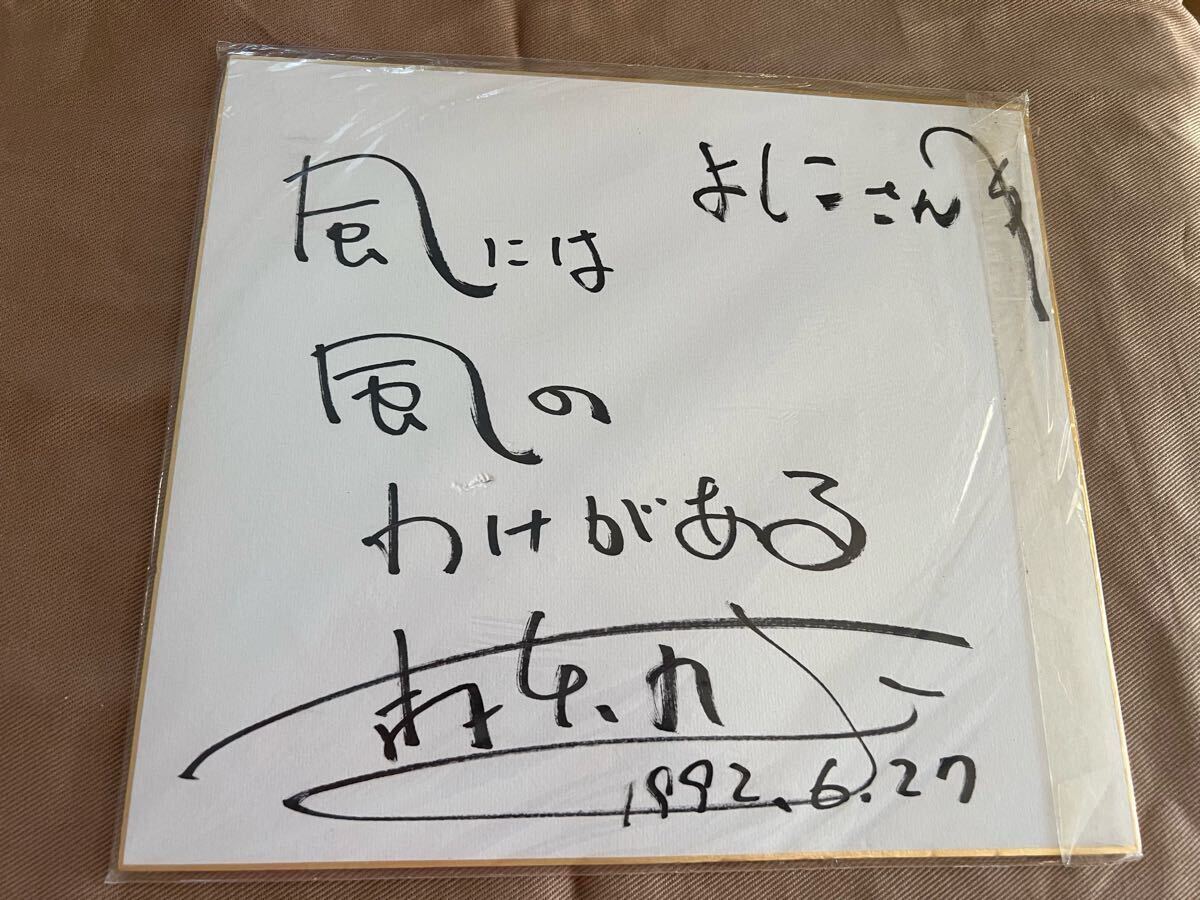 よしこさん江
風には
風の
わけがある
1992.6.27